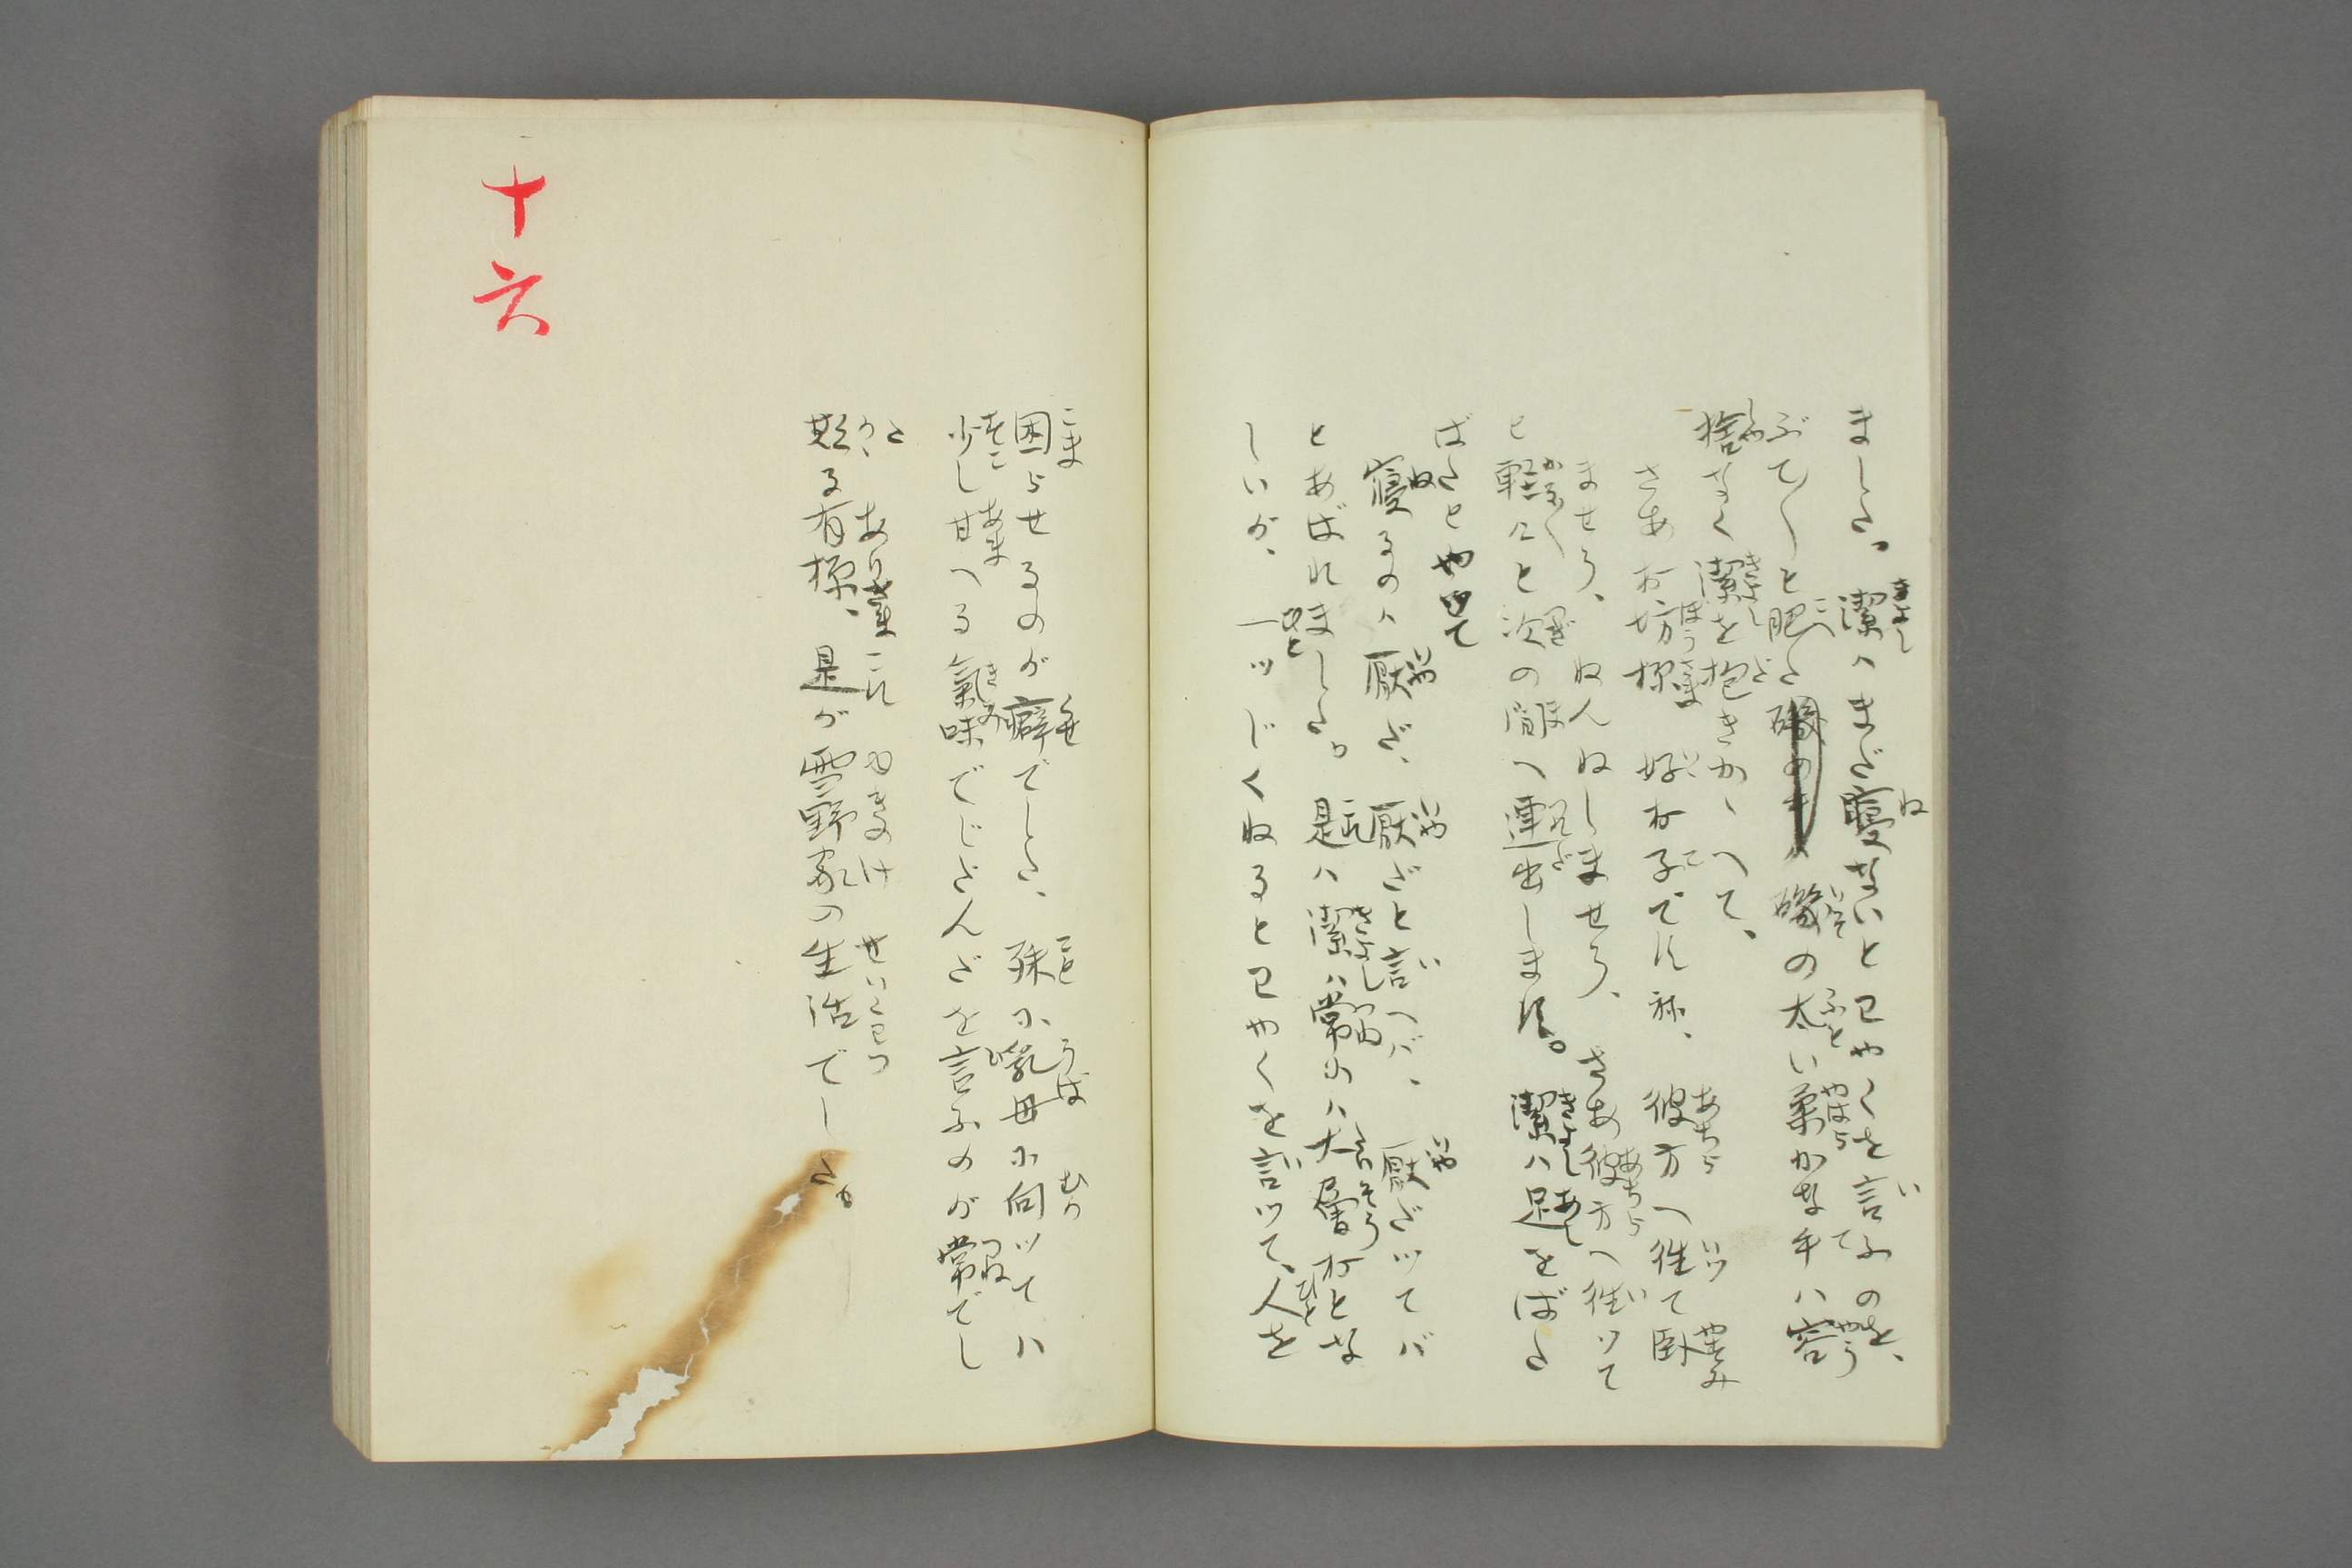 ました。潔ハまだ寝ないと曰やくを言ふのを、
ぶて〱と肥た磯の太い柔かな手ハ容
捨なく潔を抱きかゝへて、
さあお坊様好お子ですね、彼方へ往て臥
ませう、ねんねしませう、さあ彼方へ往ツて
と軽々と次の間へ連出します。潔ハ足をばた
ばたとやつて
寝るのハ厭だ、厭だと言へバ、厭だツてバ
とあばれました。是ハ潔ハ常のハ大層おとな
しいが、一ツじくねると曰やくを言ツて、人を
困らせるのが癖でした、殊に乳母に向ツてハ
少し甘へる氣味でじださんだを言ふのが常でし
た
斯る有様、是が雪野家の生活でした。
十六